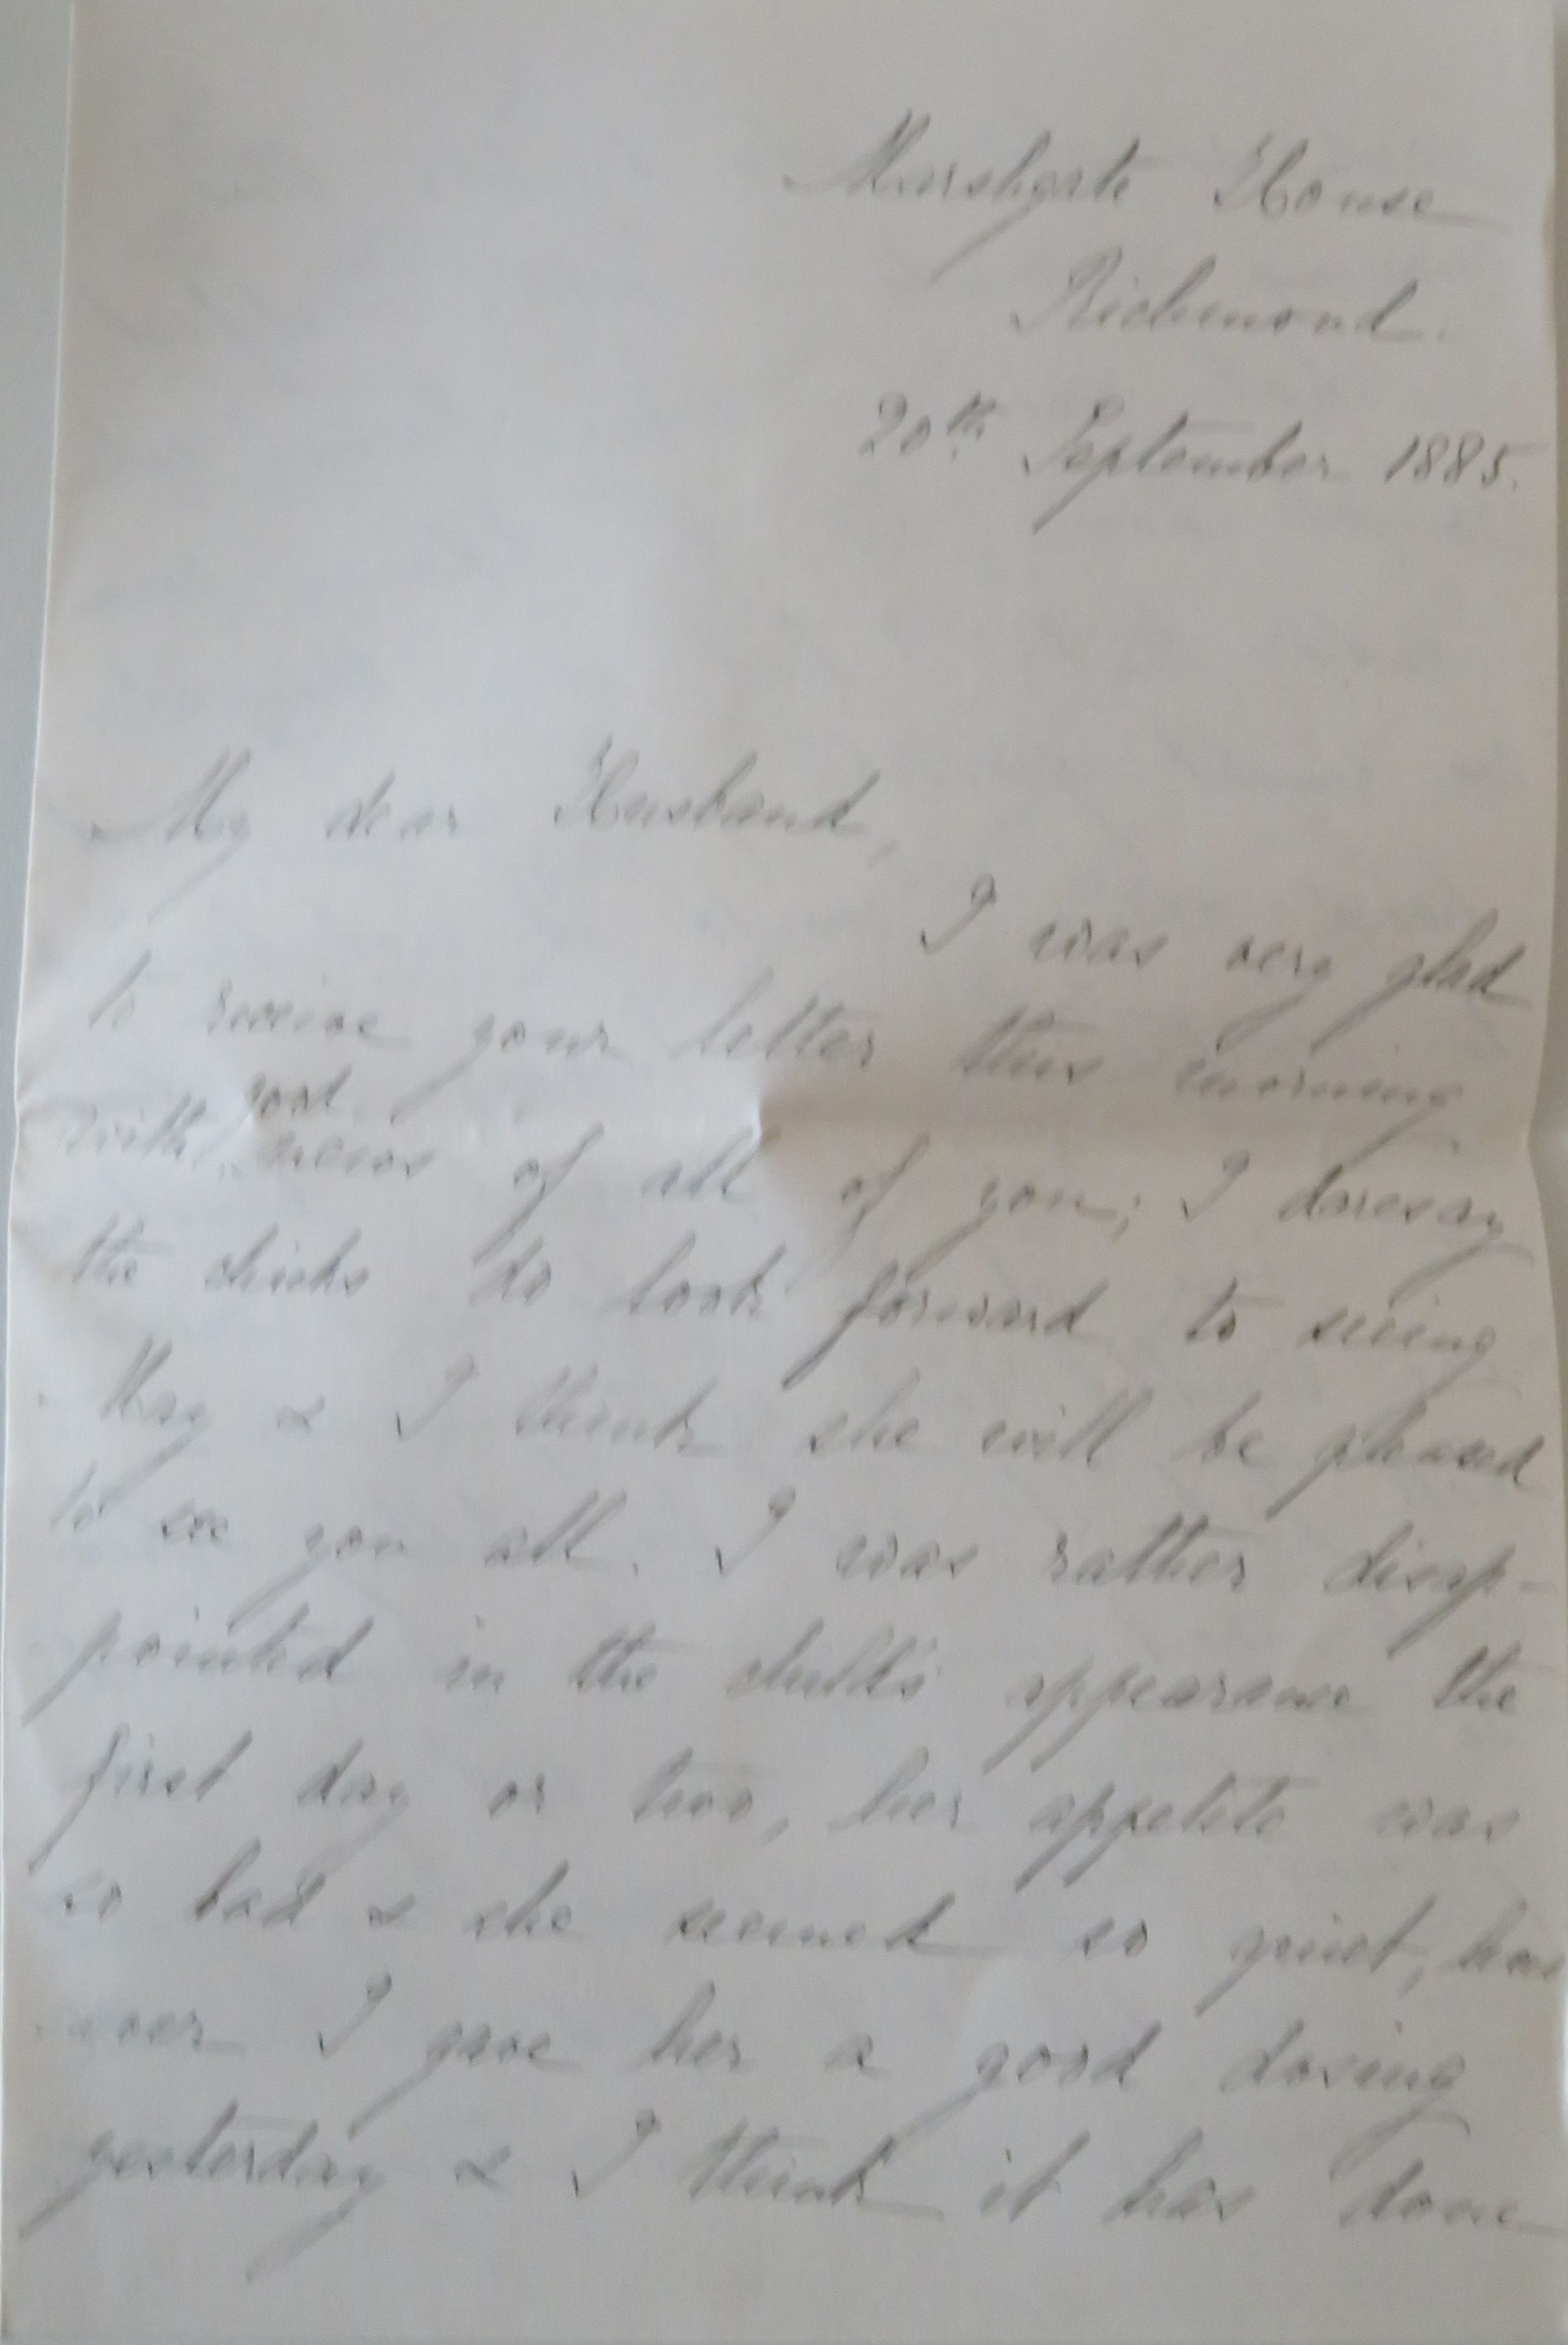 Marshgate House
Richmond.
20th September 1885.
My dear Husband,
I was very glad
to receive your letter this morning
good
with news of all of you; I daresay
the chicks do look forward to seeing
May & I think she will be pleased
to see you all. I was rather disap-
pointed in the child's appearance the
first day or two, her appetite was
so bad & she seemed so quiet, how
ever I gave her a good dosing
yesterday & I think it has done